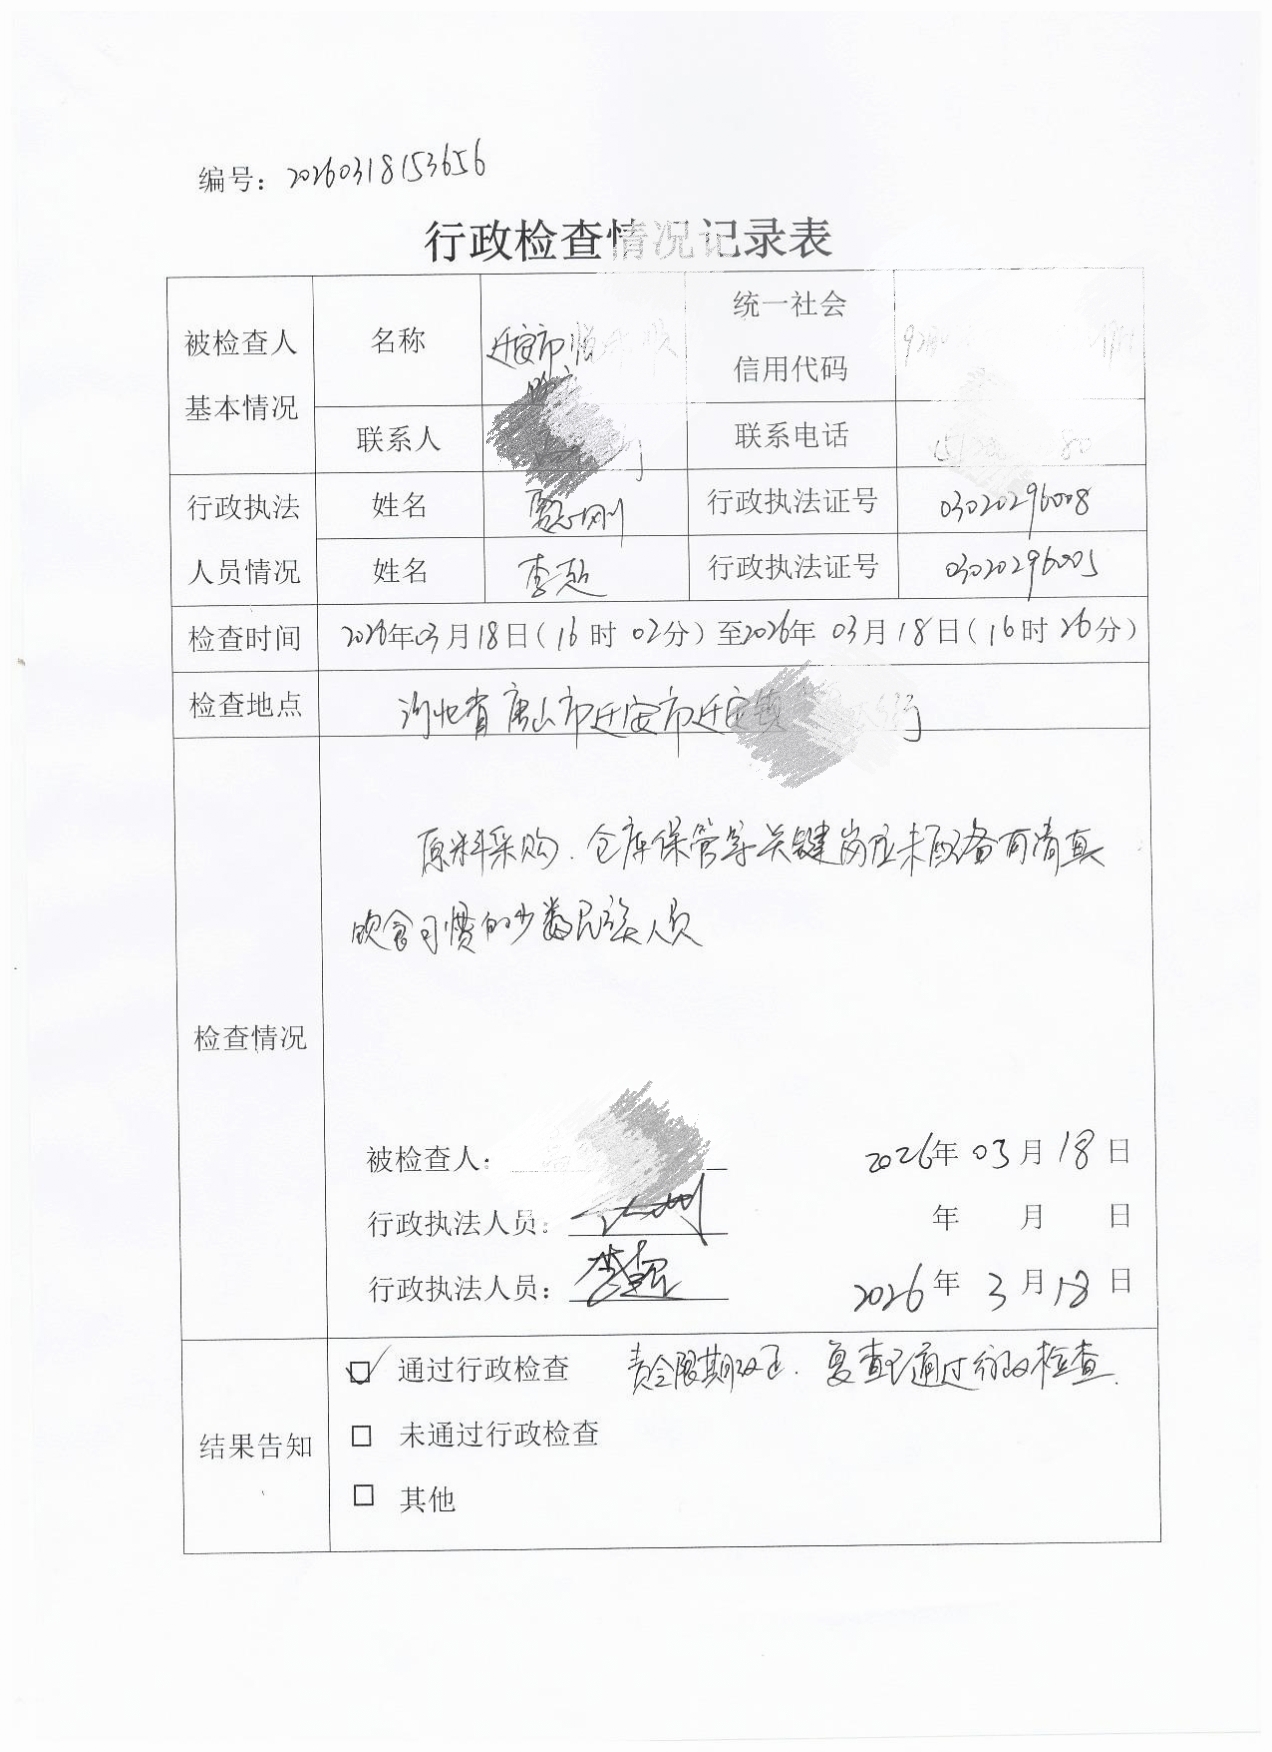 编号：20260318153656
行政检查情况记录表
被检查人基本情况
名称
迁安市
统一社会信用代码
联系人
联系电话
行政执法人员情况
姓名
行政执法证号
03020296008
姓名
李超
行政执法证号
03020296005
检查时间
2026年03月18日（16时02分）至2026年03月18日（16时26分）
检查地点
河北省唐山市迁安市迁安镇
检查情况
原料采购、仓库保管等关键岗位未配备有清真
饮食习惯的少数民族人员
被检查人： 2026年03月18日
行政执法人员： 年 月 日
行政执法人员： 2026年3月18日
结果告知
☑ 通过行政检查 责令限期改正、复查已通过行政检查.
□ 未通过行政检查
□ 其他